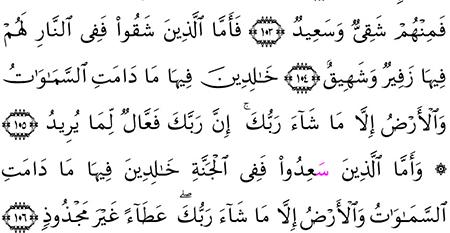 فَمِنْهُمْ شَقِىٌّ وَسَعِيدٌ ۝١٠٣ فَأَمَّا ٱلَّذِينَ شَقُوا۟ فَفِى ٱلنَّارِ لَهُمْ
فِيهَا زَفِيرٌ وَشَهِيقٌ ۝١٠٤ خَـٰلِدِينَ فِيهَا مَا دَامَتِ ٱلسَّمَـٰوَٰتُ
وَٱلْأَرْضُ إِلَّا مَا شَآءَ رَبُّكَ ۚ إِنَّ رَبَّكَ فَعَّالٌ لِّمَا يُرِيدُ ۝١٠٥
۞ وَأَمَّا ٱلَّذِينَ سَعِدُوا۟ فَفِى ٱلْجَنَّةِ خَـٰلِدِينَ فِيهَا مَا دَامَتِ
ٱلسَّمَـٰوَٰتُ وَٱلْأَرْضُ إِلَّا مَا شَآءَ رَبُّكَ ۖ عَطَآءً غَيْرَ مَجْذُوذٍ ۝١٠٦